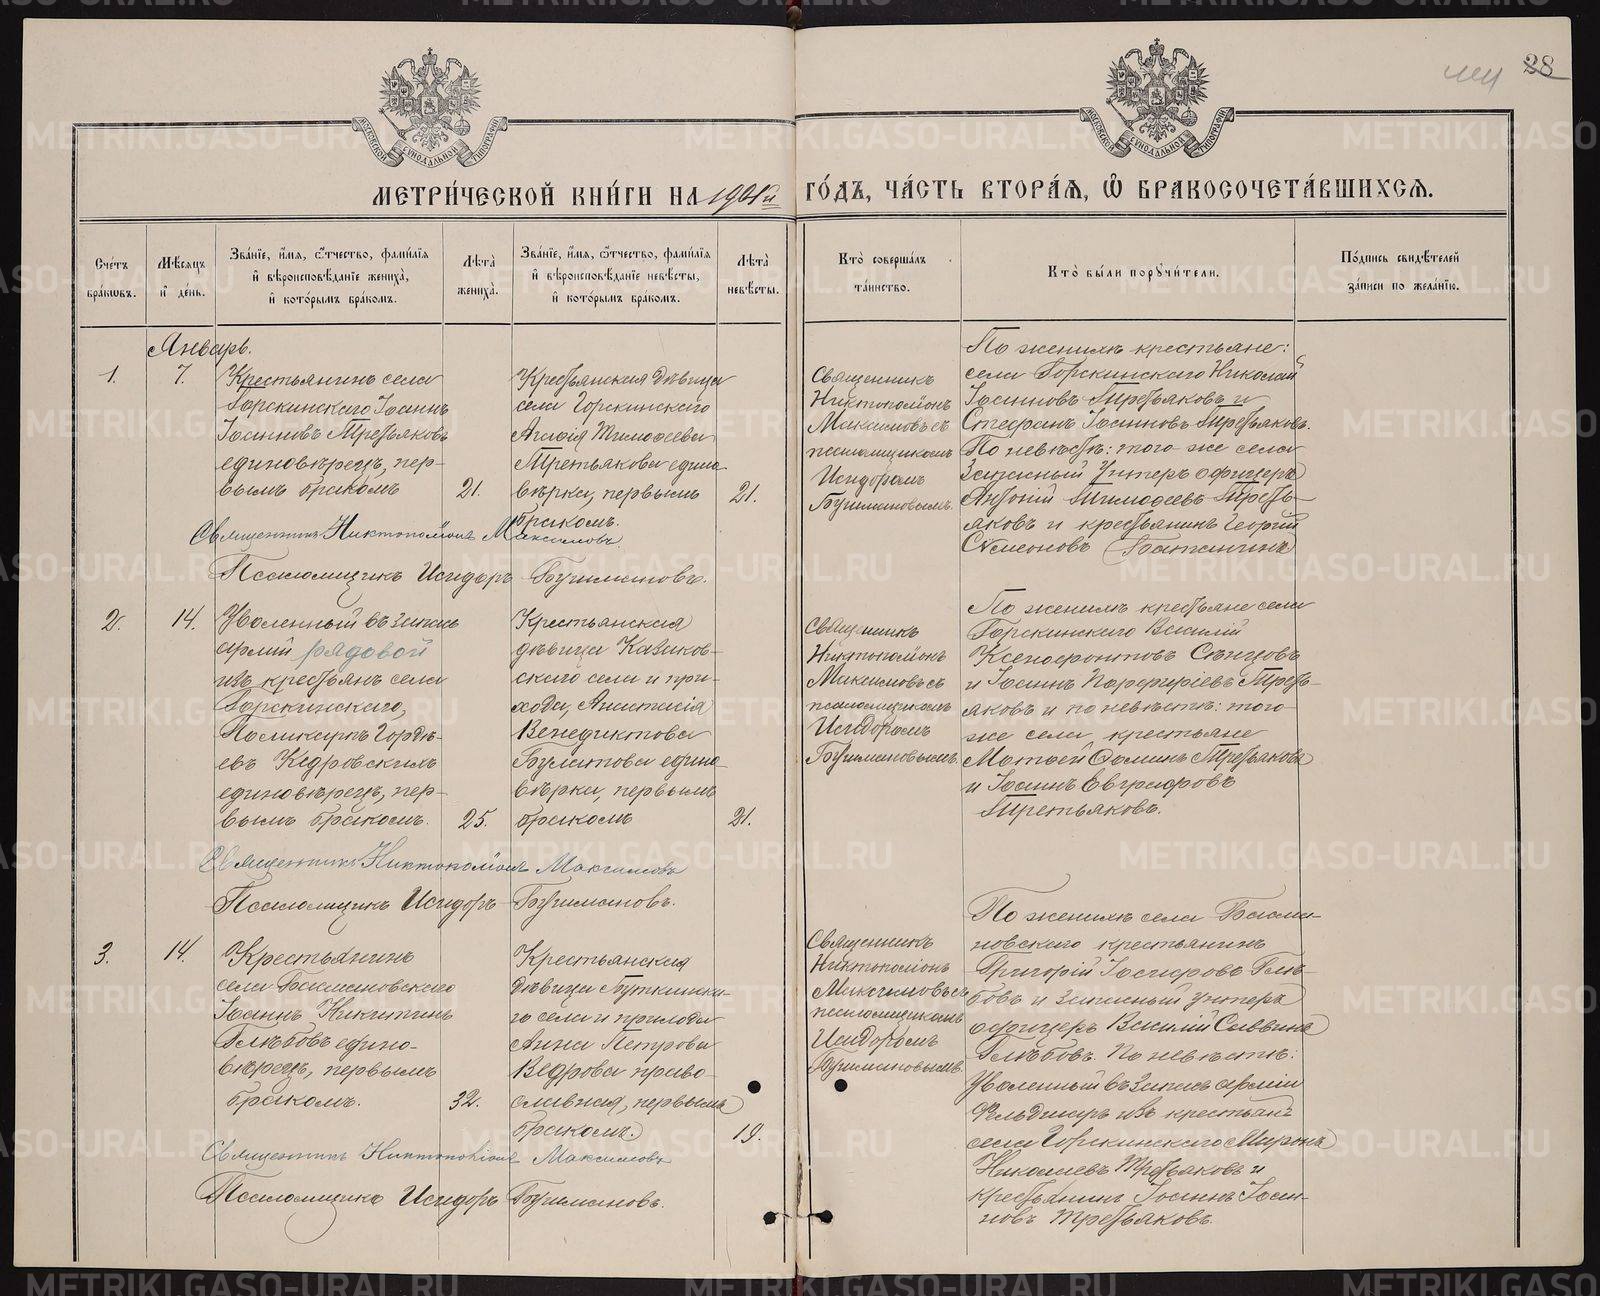 28
МЕТРИ́ЧЕСКОЙ КНИ́ГИ НА 1901й ГО́ДЪ, ЧА́СТЬ ВТОРА́Я, Ѡ҆ БРАКОСОЧЕТА́ВШИХСЯ.
Сче́тъ бра́ковъ.
Мѣ́сяцъ и҆ де́нь.
Зва́нїе, и҆́мя, ѻ҆́тчество, фами́лїя и҆ вѣроисповѣ́данїе жениха̀, и҆ кото́рымъ бра́комъ.
Лѣ́та жениха̀.
Зва́нїе, и҆́мя, ѻ҆́тчество, фами́лїя и҆ вѣроисповѣ́данїе невѣ́сты, и҆ кото́рымъ бра́комъ.
Лѣ́та невѣ́сты.
Кто̀ соверша́лъ та́инство.
Кто̀ бы́ли поручи́тели.
По́дпись свидѣ́телей за́писи по жела́нїю.
Январь.
1.
7.
Крестьянинъ села
Горскинскаго Іоаннъ
Іоанновъ Третьяковъ
единовѣрецъ, пер-
вымъ бракомъ
21.
Крестьянская дѣвица
села Горскинскаго
Агафія Тимофеева
Третьякова едино-
вѣрка, первымъ
бракомъ.
21.
Священникъ
Никтополіонъ
Максимовъ съ
псаломщикомъ
Исидоромъ
По женихѣ крестьяне:
села Горскинскаго Николай
Іоанновъ Третьяковъ и
Стефанъ Іоанновъ Третьяковъ.
По невѣстѣ: того же села
Запасный Унтеръ офицеръ
Антоній Тимофеевъ Треть-
яковъ и крестьянинъ Георгій
Симеоновъ
Священникъ Никтополіонъ Максимовъ
Псаломщикъ Исидоръ
2.
14.
Уволенный въ запасъ
арміи рядовой
изъ крестьянъ села
Горскинскаго,
Поликарпъ Гордѣ-
евъ Кедровскихъ
единовѣрецъ, пер-
вымъ бракомъ.
25.
Крестьянская
дѣвица Казаков-
скаго села и при-
хода, Анастасія
Венедиктова
Булатова едино-
вѣрка, первымъ
бракомъ
21.
Священникъ
Никтополіонъ
Максимовъ съ
псаломщикомъ
Исидоромъ
По женихѣ крестьяне села
Горскинскаго Василій
Ксенофонтовъ Сѣнцовъ
и Іоаннъ Парфиріевъ Треть-
яковъ и по невѣстѣ: того
же села, крестьяне
Матвей Ѳоминъ Третьяковъ
и Іоаннъ Евграфовъ
Третьяковъ.
Священникъ Никтополіонъ Максимовъ
Псаломщикъ Исидоръ
3.
14.
Крестьянинъ
села Басмановскаго
Іоаннъ Никитинъ
Глѣбовъ едино-
вѣрецъ, первымъ
бракомъ.
32.
Крестьянская
дѣвица Буткинска-
го села и прихода
Анна Петрова
Ведрова право-
славная, первымъ
бракомъ.
19.
Священникъ
Никтополіонъ
Максимовъ съ
псаломщикомъ
Исидоромъ
По женихѣ села Басма-
новскаго крестьянинъ
Григорій Іосифовъ Глѣ-
бовъ и Запасный унтеръ
офицеръ Василій Саввинъ
Глѣбовъ. По невѣстѣ:
Уволенный въ запасъ арміи
Фельдшеръ изъ крестьянъ
села Горскинскаго Миронъ
Николаевъ Третьяковъ и
крестьянинъ Іоаннъ Іоан-
новъ Третьяковъ.
Священникъ Никтополіонъ Максимовъ
Псаломщикъ Исидоръ
METRIKI.GASO-URAL.RU